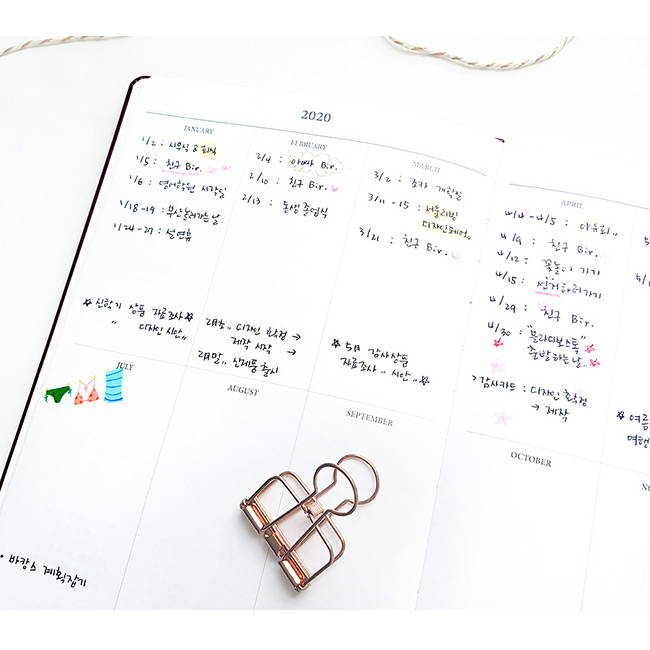 2020
JANUARY
1/2 : 시무식 & 회식
1/5 : 친구 Bir.
1/6 : 영어학원 시작일
1/18-19 : 부산놀러가는날
1/24-27 : 설연휴
☆ 신학기 상품 자료조사 ☆
〃 디자인 시안 〃
FEBRUARY
2/4 : 아빠 Bir.
2/10 : 친구 Bir.
2/13 : 동생 졸업식
2月초.. 디자인 확정 →
제작 시작
2月말.. 신제품 출시
MARCH
3/2 : 조카 개학일
3/11-15 : 서울리빙
디자인페어
3/21 : 친구 Bir.
☆ 5月 감사상품
자료조사 .. 시안.. ☆
APRIL
4/4-4/5 : 야유회..
4/9 : 친구 Bir.
4/12 : 꽃놀이 가기
4/15 : 선거하러가기
4/29 : 친구 Bir.
4/30 :
출발하는날..
>감사카드 : 디자인 확정
→ 제작
☆ 여름
여행
JULY
• 바캉스 계획잡기
AUGUST
SEPTEMBER
OCTOBER